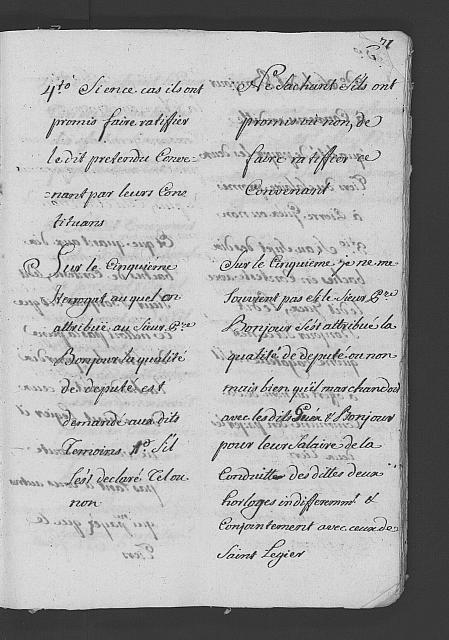 71
4to. Si en ce cas ils ont
promis faire ratiffier
le dit pretendu Conve-
-nant par leurs Cons
tituans
Sur le Cinquieme
Interrogat auquel on
attribüe au Sieur Pre
Bonjour la qualité
de deputé est
demandé aux dits
Temoins 1o S'il
s'est declaré Tel ou
non
Ne Sachant S'ils ont
promis ou non, de
faire ratiffier ce
Convenant
Sur le Cinquieme je ne me
Souvient pas si le Sieur Pre
Bonjour s'est attribué la
qualité de deputé ou non
mais bien qu'il marchandoit
avec les dits Guex & Bonjour
pour leur Salaire de la
Conduitte des dittes deux
horloges indifferemmt. &
Conjointement avec ceux de
Saint Legier